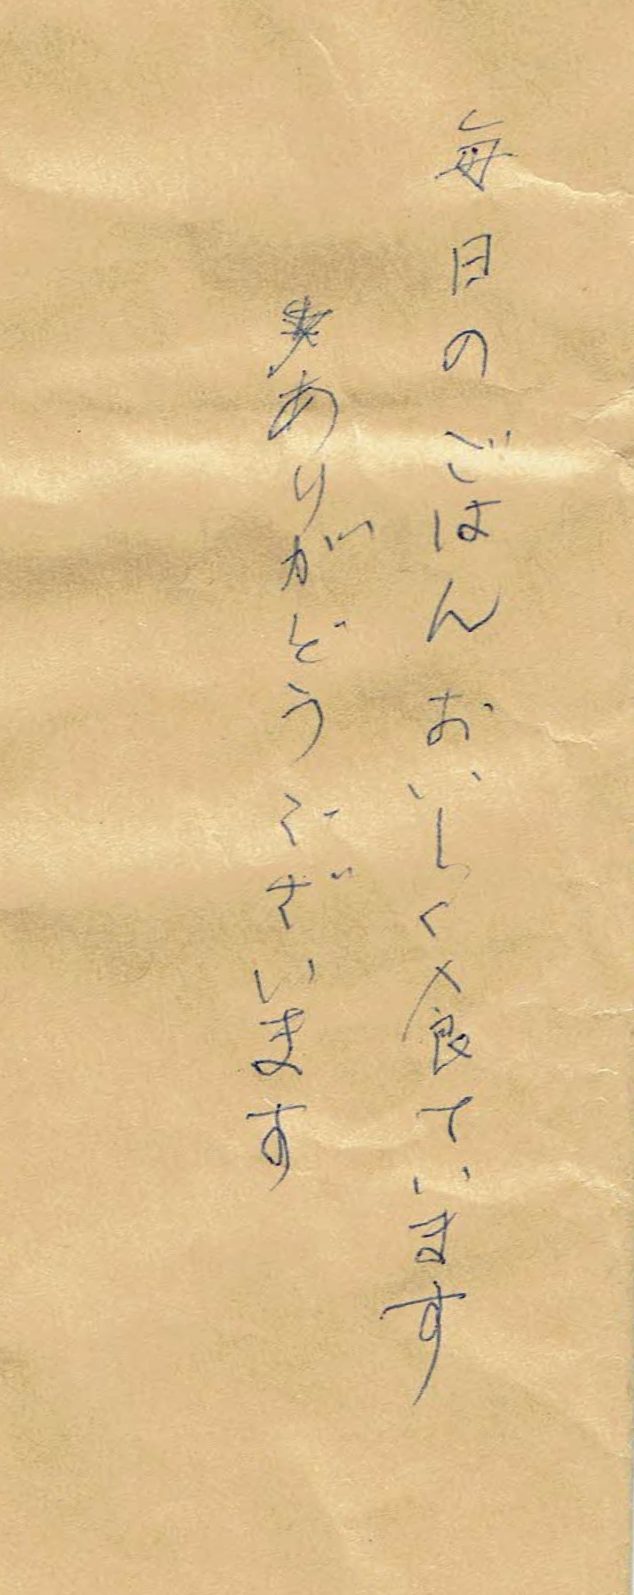 毎日のごはんおいしく食ています
ありがどうございます